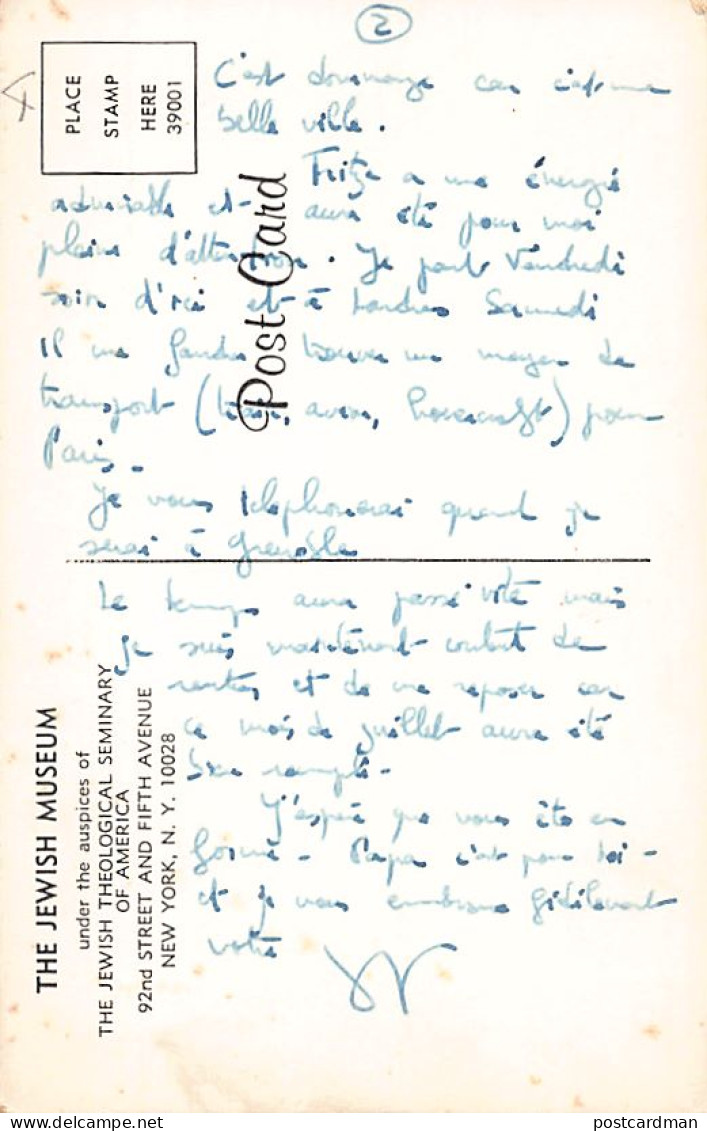 2
C'est dommage car c'est une
belle ville.
Fritz a une énergie
admirable et aura été pour moi
pleine d'attention. Je pars Vendredi
soir d'ici et à Londres Samedi
Il me faudra trouver un moyen de
transport (train, avion, hovercraft) pour
Paris.
Je vous téléphonerai quand je
serai à Grenoble
Le temps aura passé vite mais
je suis maintenant content de
rentrer et de me reposer car
ce mois de juillet aura été
bien rempli.
J'espère que vous êtes en
forme. Papa c'est pour toi.
et je vous embrasse fidèlement
votre
PLACE
STAMP
HERE
39001
Post Card
THE JEWISH MUSEUM
under the auspices of
THE JEWISH THEOLOGICAL SEMINARY
OF AMERICA
92nd STREET AND FIFTH AVENUE
NEW YORK, N. Y. 10028
postcardman